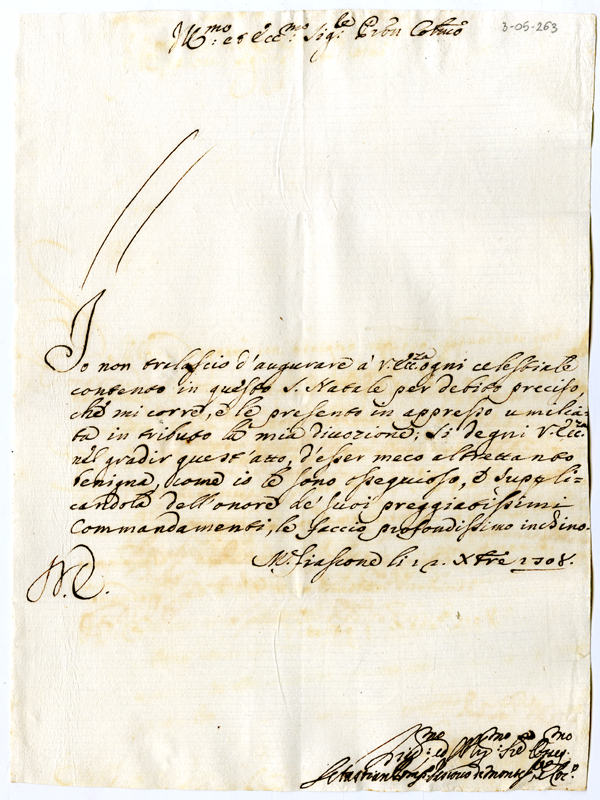 Ill.mo et Ecc.mo Sig.re P.ron Col.mo
3-05-263
Io non trelascio d'augurare à V. Ecc.za ogni celestiale
contento in questo S. Natale per debito preciso,
chè mi corre, e le presento in appresso umilia-
ta in tributo la mia divozione; si degni V. Ecc.za
nel gradir quest'atto, d'esser meco altrettanto
benigna, come io le sono ossequioso, e suppli=
candola dell'onore de' suoi preggiatissimi
Commandamenti, le faccio profondissimo inchino.
M.te Fiascone li 12. Xbre 1708.
V. E.